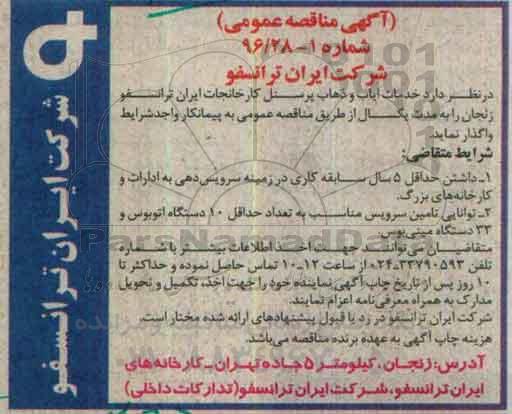 (آگهی مناقصه عمومی)
شماره ۱-۹۶/۲۸
شرکت ایران ترانسفو
درنظر دارد خدمات ایاب و ذهاب پرسنل کارخانجات ایران ترانسفو
زنجان را به مدت یکسال از طریق مناقصه عمومی به پیمانکار واجدشرایط
واگذار نماید.
شرایط متقاضی:
۱-داشتن حداقل ۵ سال سابقه کاری در زمینه سرویس‌دهی به ادارات و
کارخانه‌های بزرگ.
۲-توانایی تامین سرویس مناسب به تعداد حداقل ۱۰ دستگاه اتوبوس و
۳۳ دستگاه مینی‌بوس.
متقاضیان می‌توانند جهت اخذ اطلاعات بیشتر با شماره
تلفن ۳۳۷۹۰۵۹۳-۰۲۴ از ساعت ۱۲-۱۰ تماس حاصل نموده و حداکثر تا
۱۰ روز پس از تاریخ چاپ آگهی نماینده خود را جهت اخذ، تکمیل و تحویل
مدارک به همراه معرفی‌نامه اعزام نمایند.
شرکت ایران ترانسفو در رد یا قبول پیشنهادهای ارائه شده مختار است.
هزینه چاپ آگهی به عهده برنده مناقصه می‌باشد.
آدرس: زنجان، کیلومتر ۵ جاده تهران - کارخانه‌های
ایران ترانسفو، شرکت ایران ترانسفو (تدارکات داخلی)
شرکت ایران ترانسفو
ParsNamadData